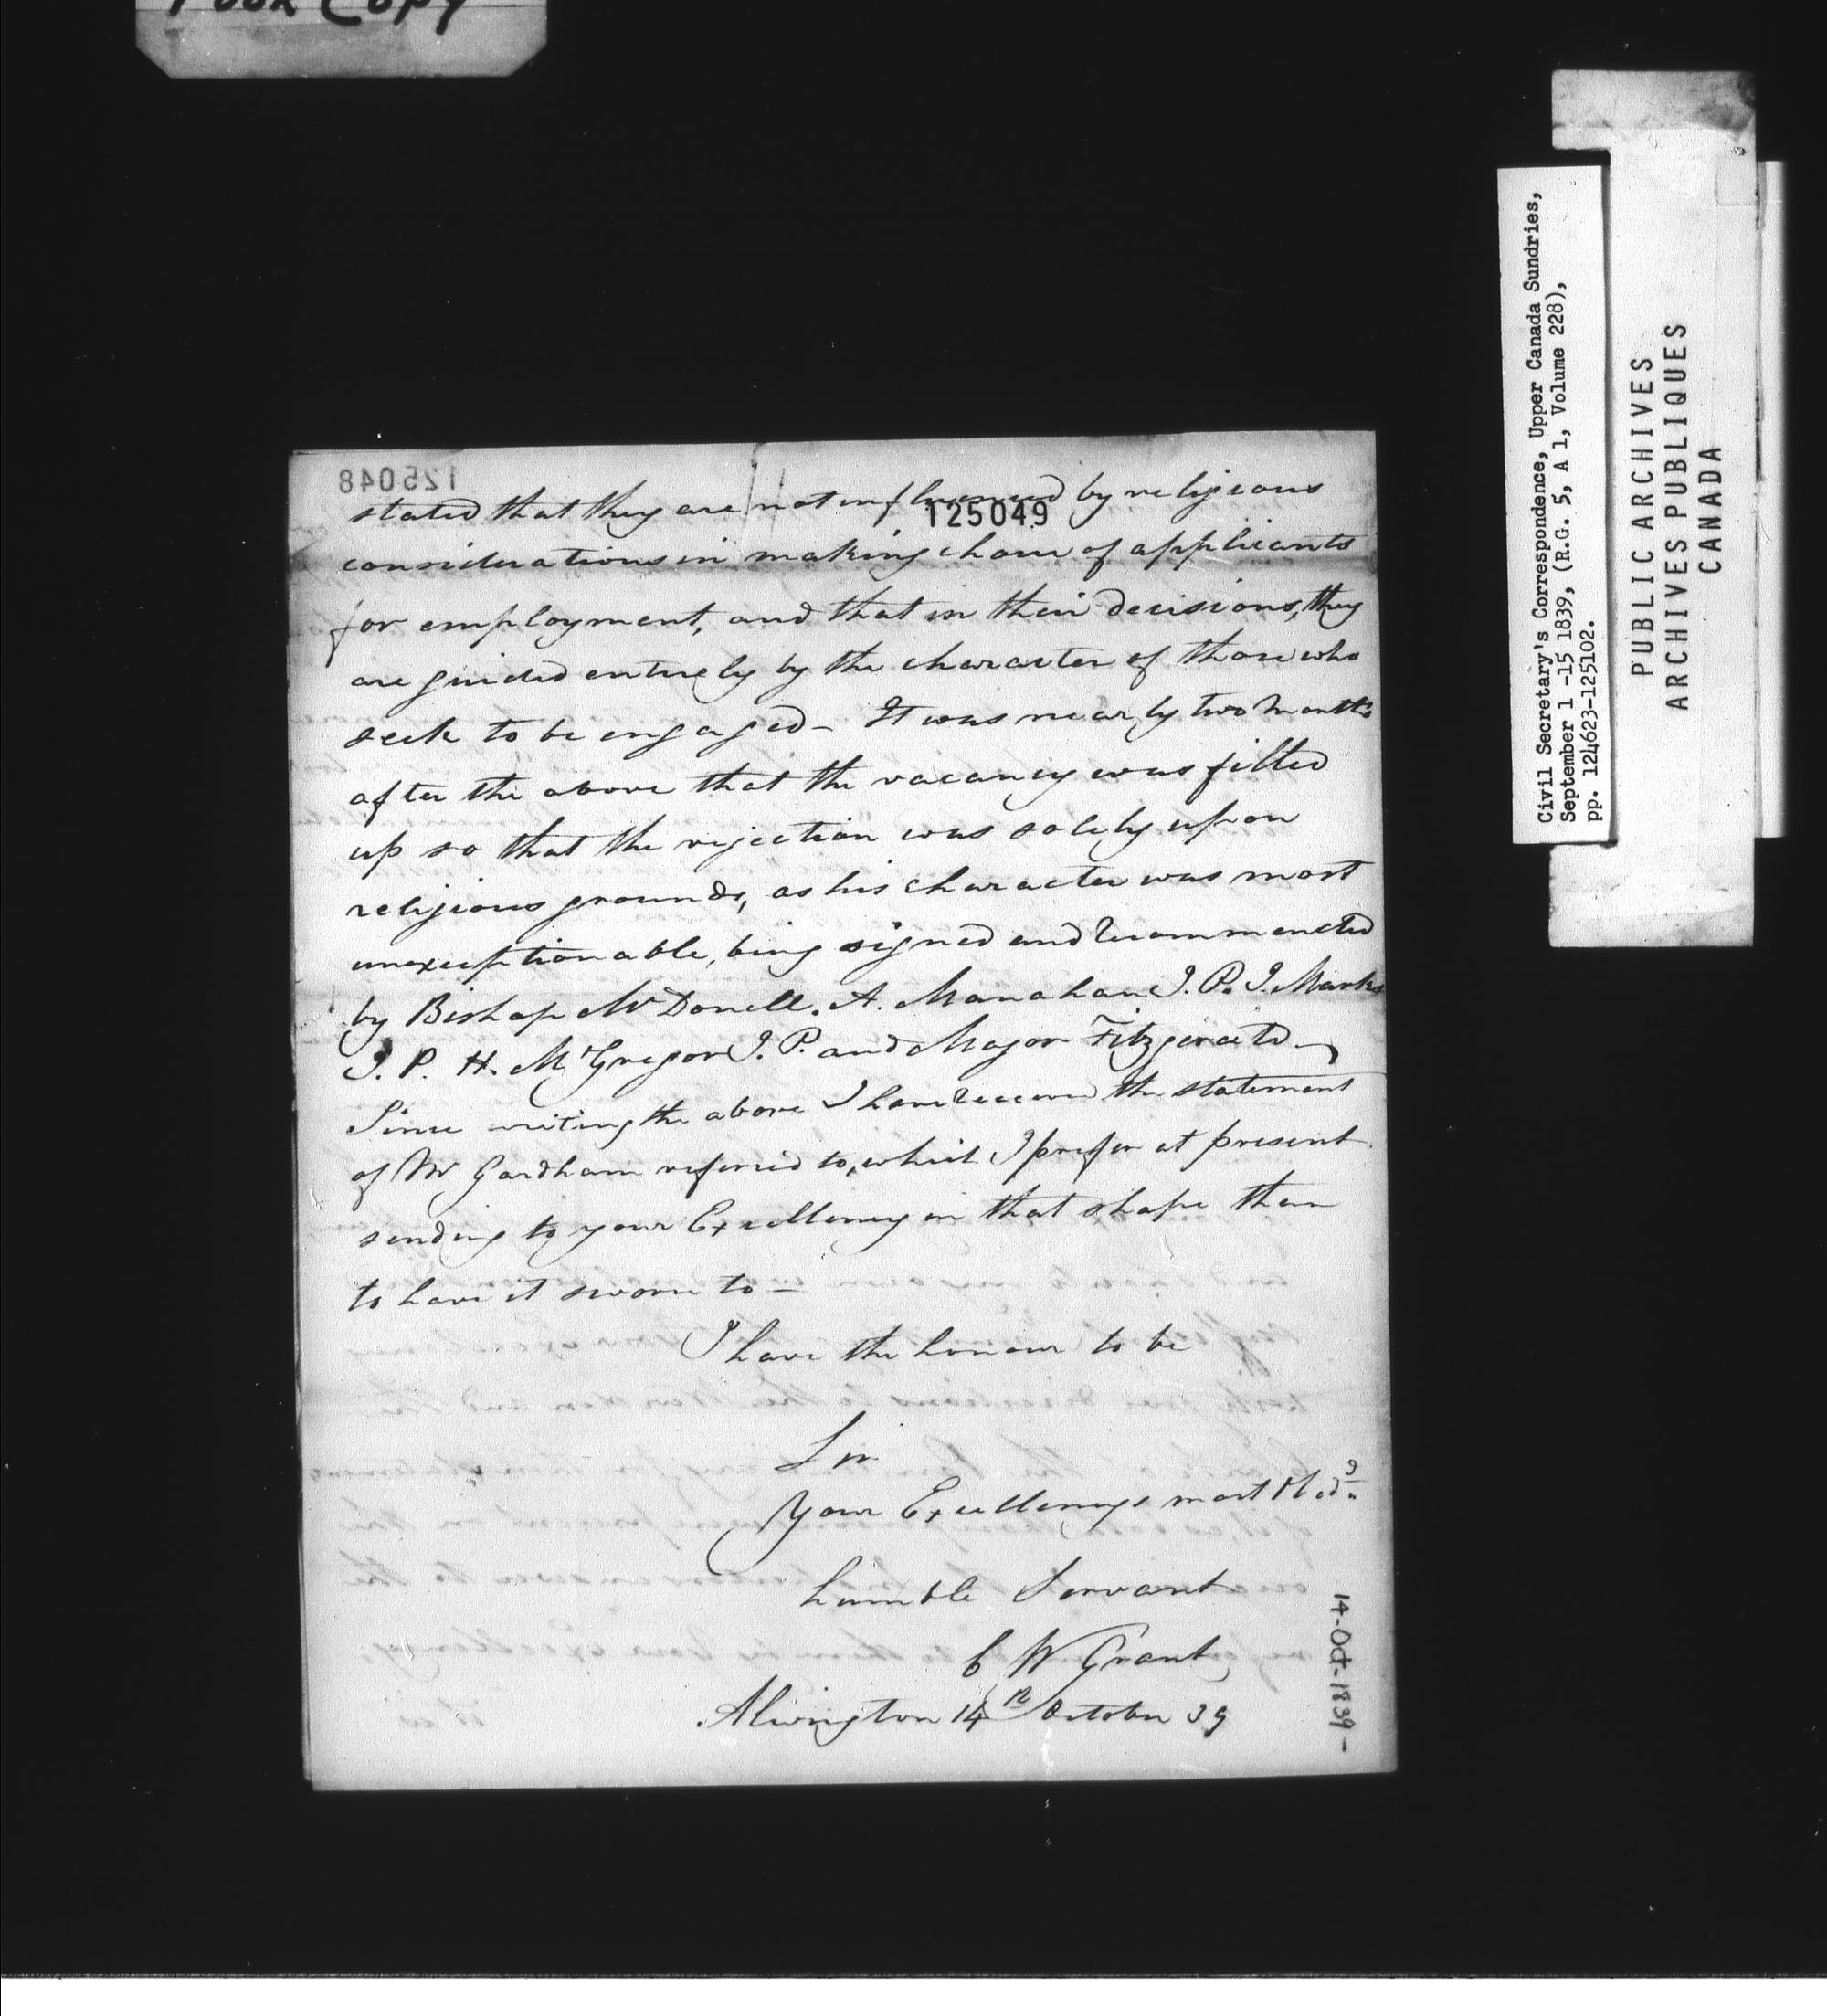 Poor Copy
125048
stated that they are not influenced by religious
125049
considerations in making choice of applicants
for employment, and that in their decisions, they
are guided entirely by the character of those who
seek to be engaged - It was nearly two months
after the above that the vacancy was filled
up so that the rejection was solely upon
religious grounds, as his character was most
unexceptionable, being signed and recommended
by Bishop McDonell. A. Manahan J. P. J. Marks
J. P. H. McGregor J. P. and Major Fitzgerald -
Since writing the above I have received the statement
of Mr Gardham referred to, which I prefer at present
sending to your Excellency in that shape than
to have it sworn to -
I have the honour to be
Sir
Your Excellencys most
humble Servant
C W Grant
Alwington 14th October 39
14-Oct-1839-
Civil Secretary's Correspondence, Upper Canada Sundries,
September 1 -15 1839, (R.G. 5, A 1, Volume 228),
pp. 124623-125102.
PUBLIC ARCHIVES
ARCHIVES PUBLIQUES
CANADA